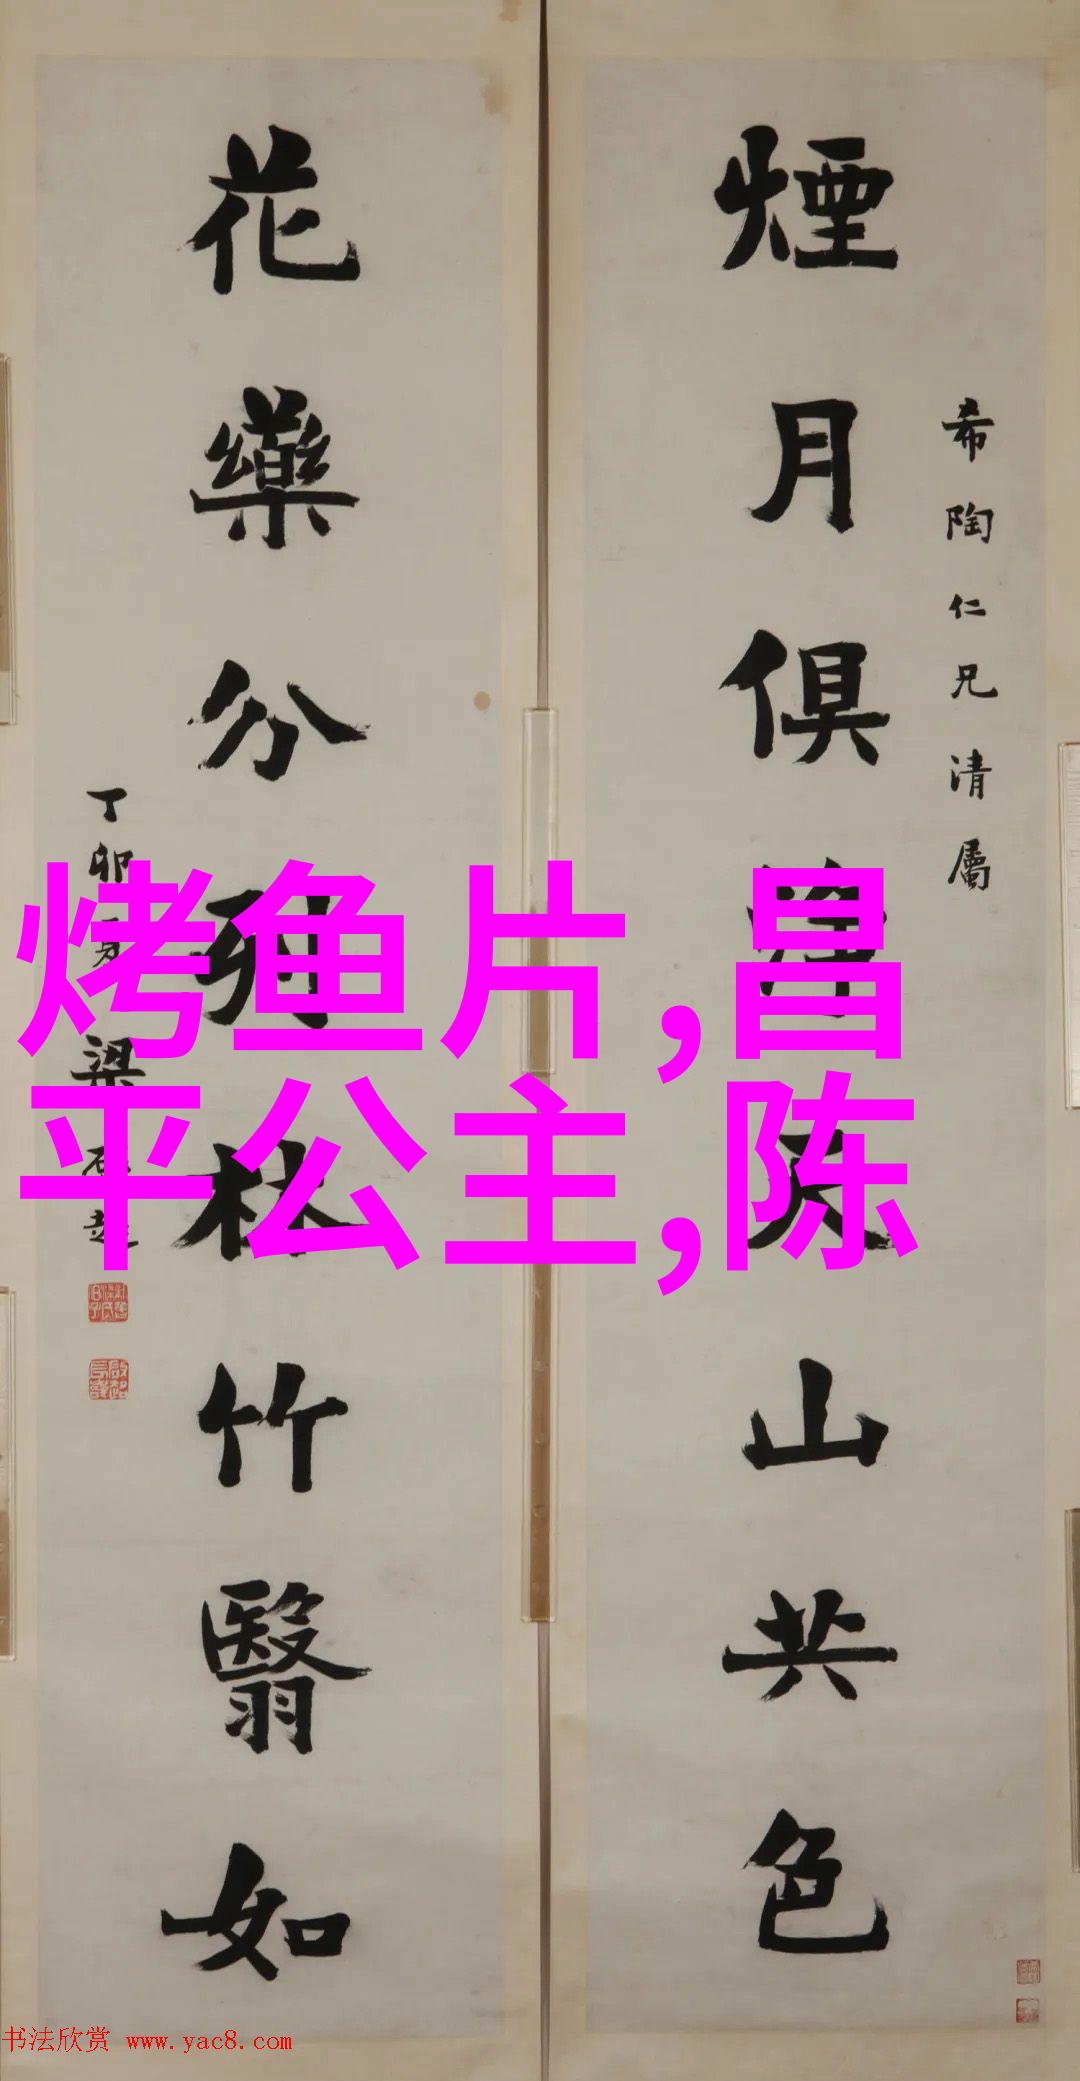 希陶仁兄清属
煙月俱 山共色
花藥分列林竹翳如
丁卯 梁啟超
烤鱼片,昌
平公主,陈
书法欣赏 www.yac8.com